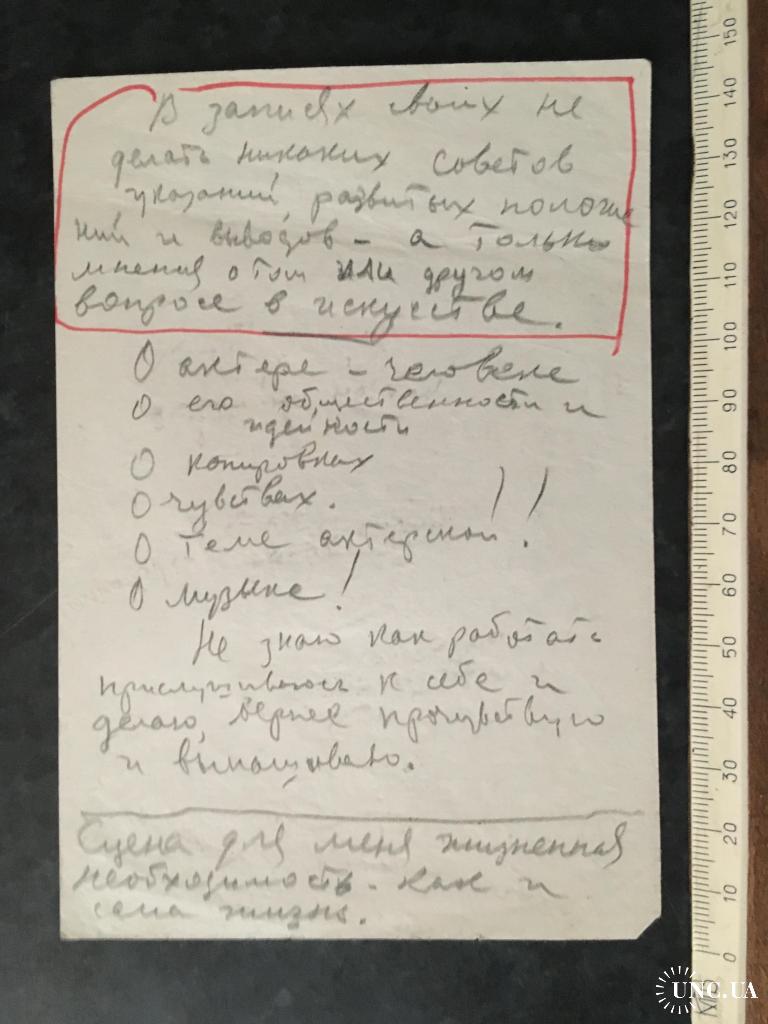 В записях своих не
делать никаких советов
указаний, развитых положе
ний и выводов - а только
мнения о том или другом
вопросе в искусстве.
О актере - человеке
О его общественности и
идейности
О копировках
О чувствах.
О теме актерской!
О музыке!
Не знаю как работать
прислушиваюсь к себе и
делаю, вернее прочувствую
и вынашиваю.
Сцена для меня жизненная
необходимость - как и
сама жизнь.
150
140
130
120
110
100
90
80
70
60
50
40
30
20
10
0
UNC.UA